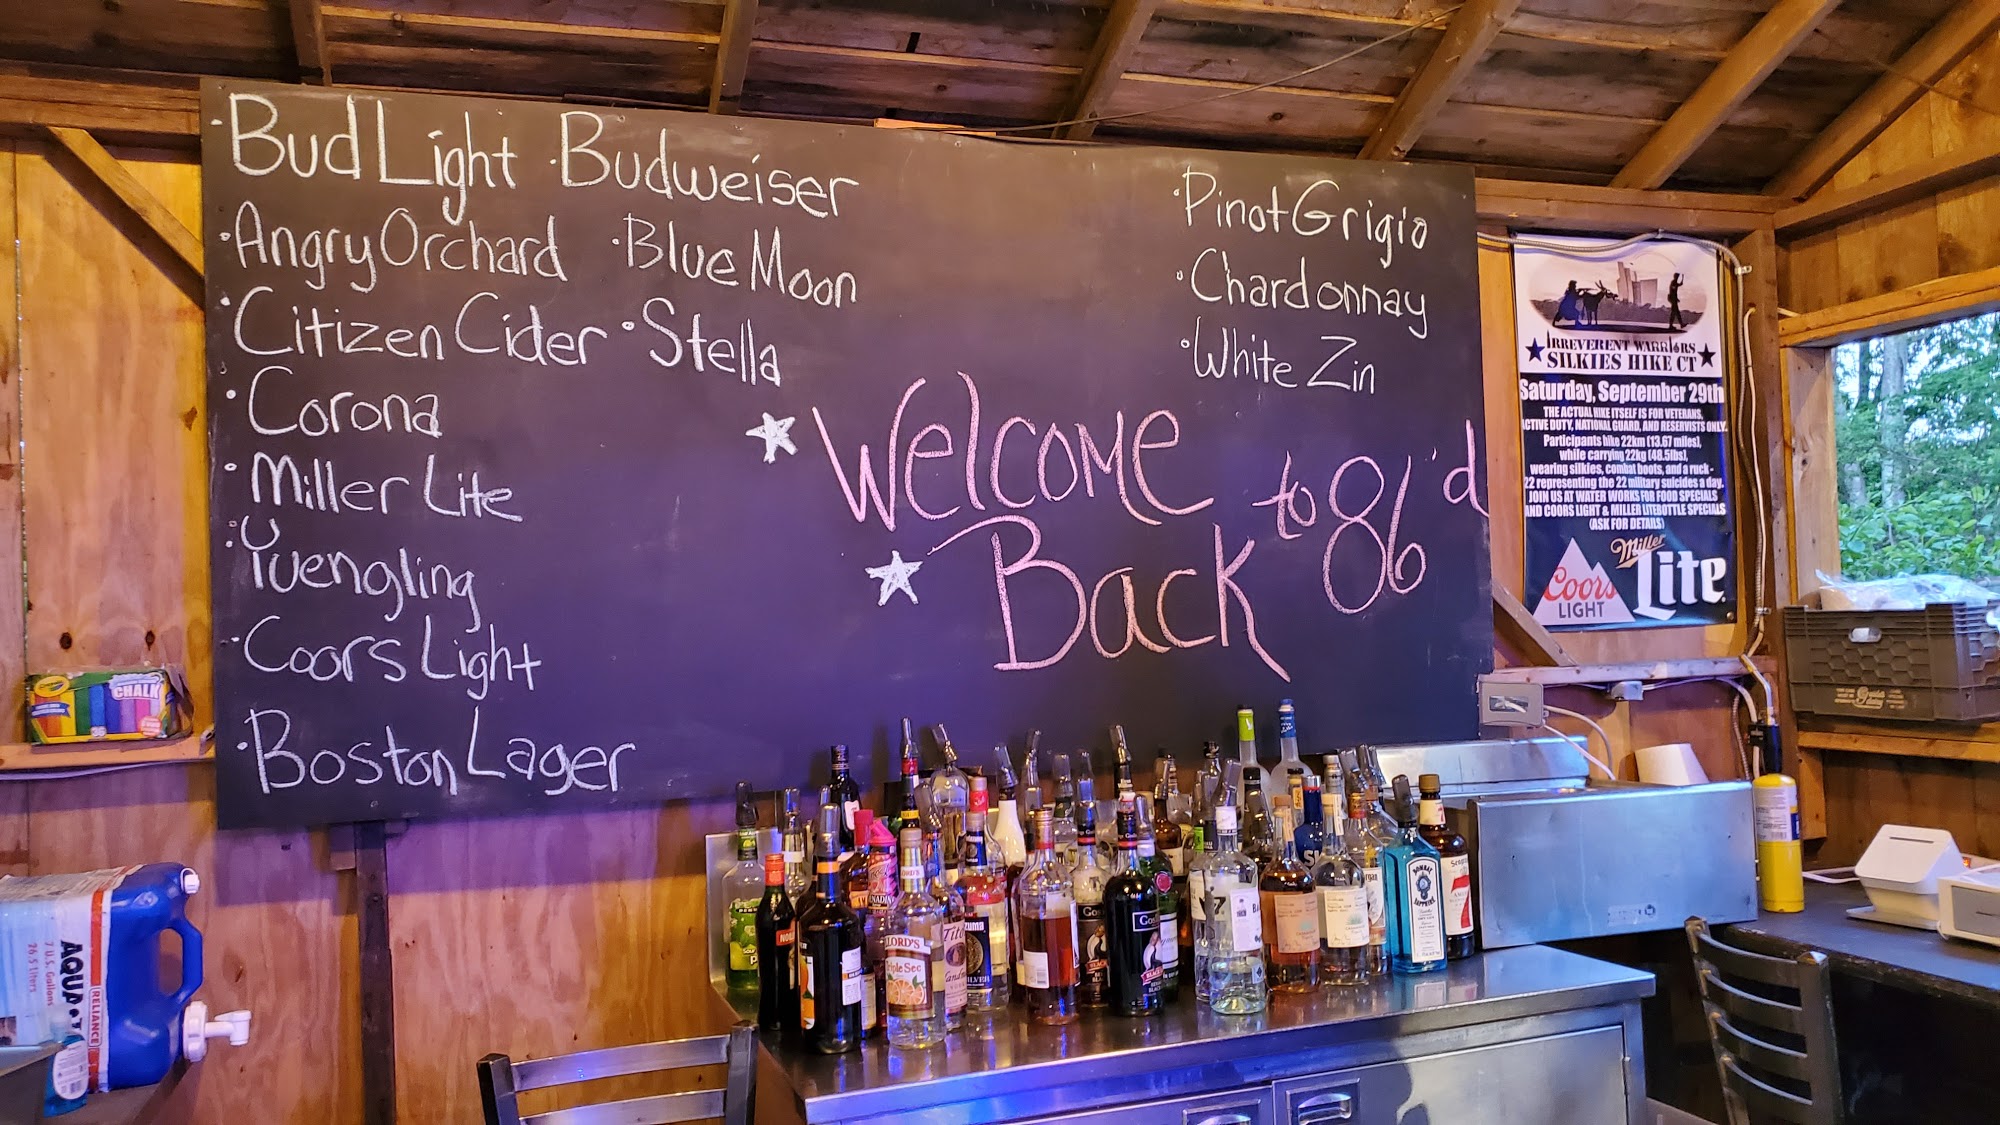 · Bud Light · Budweiser
· Angry Orchard · Blue Moon
· Citizen Cider · Stella
· Corona
· Miller Lite
· Yuengling
· Coors Light
· Boston Lager
· Pinot Grigio
· Chardonnay
· White Zin
Welcome
Back to 86'd
IRREVERENT WARRIORS
SILKIES HIKE CT
Saturday, September 29th
THE ACTUAL HIKE ITSELF IS FOR VETERANS,
ACTIVE DUTY, NATIONAL GUARD, AND RESERVISTS ONLY.
Participants hike 22km (13.67 miles),
while carrying 22kg (48.5lbs),
wearing silkies, combat boots, and a ruck -
22 representing the 22 military suicides a day.
JOIN US AT WATER WORKS FOR FOOD SPECIALS
AND COORS LIGHT & MILLER LITE BOTTLE SPECIALS
(ASK FOR DETAILS)
Coors
LIGHT
Miller
Lite
Crayola
CHALK
AQUA
7 U.S. Gallons
26.5 Liters
RELIANCE
LORD'S
Triple Sec
Tito's
BOMBAY
SAPPHIRE